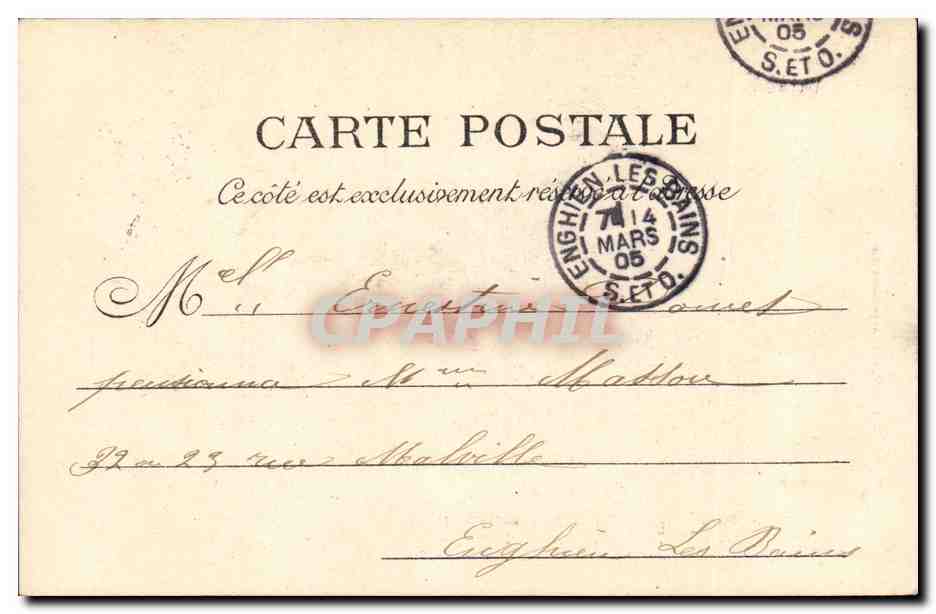 EN
MARS
05
S
S. ET O.
CARTE POSTALE
Ce côté est exclusivement réservé à l'adresse
ENGHIEN-LES-BAINS
7 14
MARS
05
S. ET O.
Melle Ernestine
CPAPHIL
pensionna Mme Masson
32 ou 23 rue Malville
Enghien Les Bains